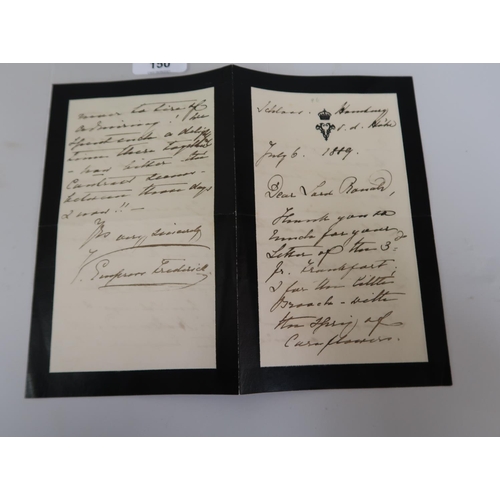 150
never to tire of
admiring! We
spent such a
time there together
- how bitter the
Contrast seems -
between those days
& now!!
Yrs very sincerely
V. Empress Frederick
Schloss Homburg
v. d. Höhe
July 6. 1889.
Dear Lord Ronald,
Thank you so
much for your
Letter of the 3d
fr. Frankfort,
& for the little
Brooch - with
the Sprig of
Cornflowers.